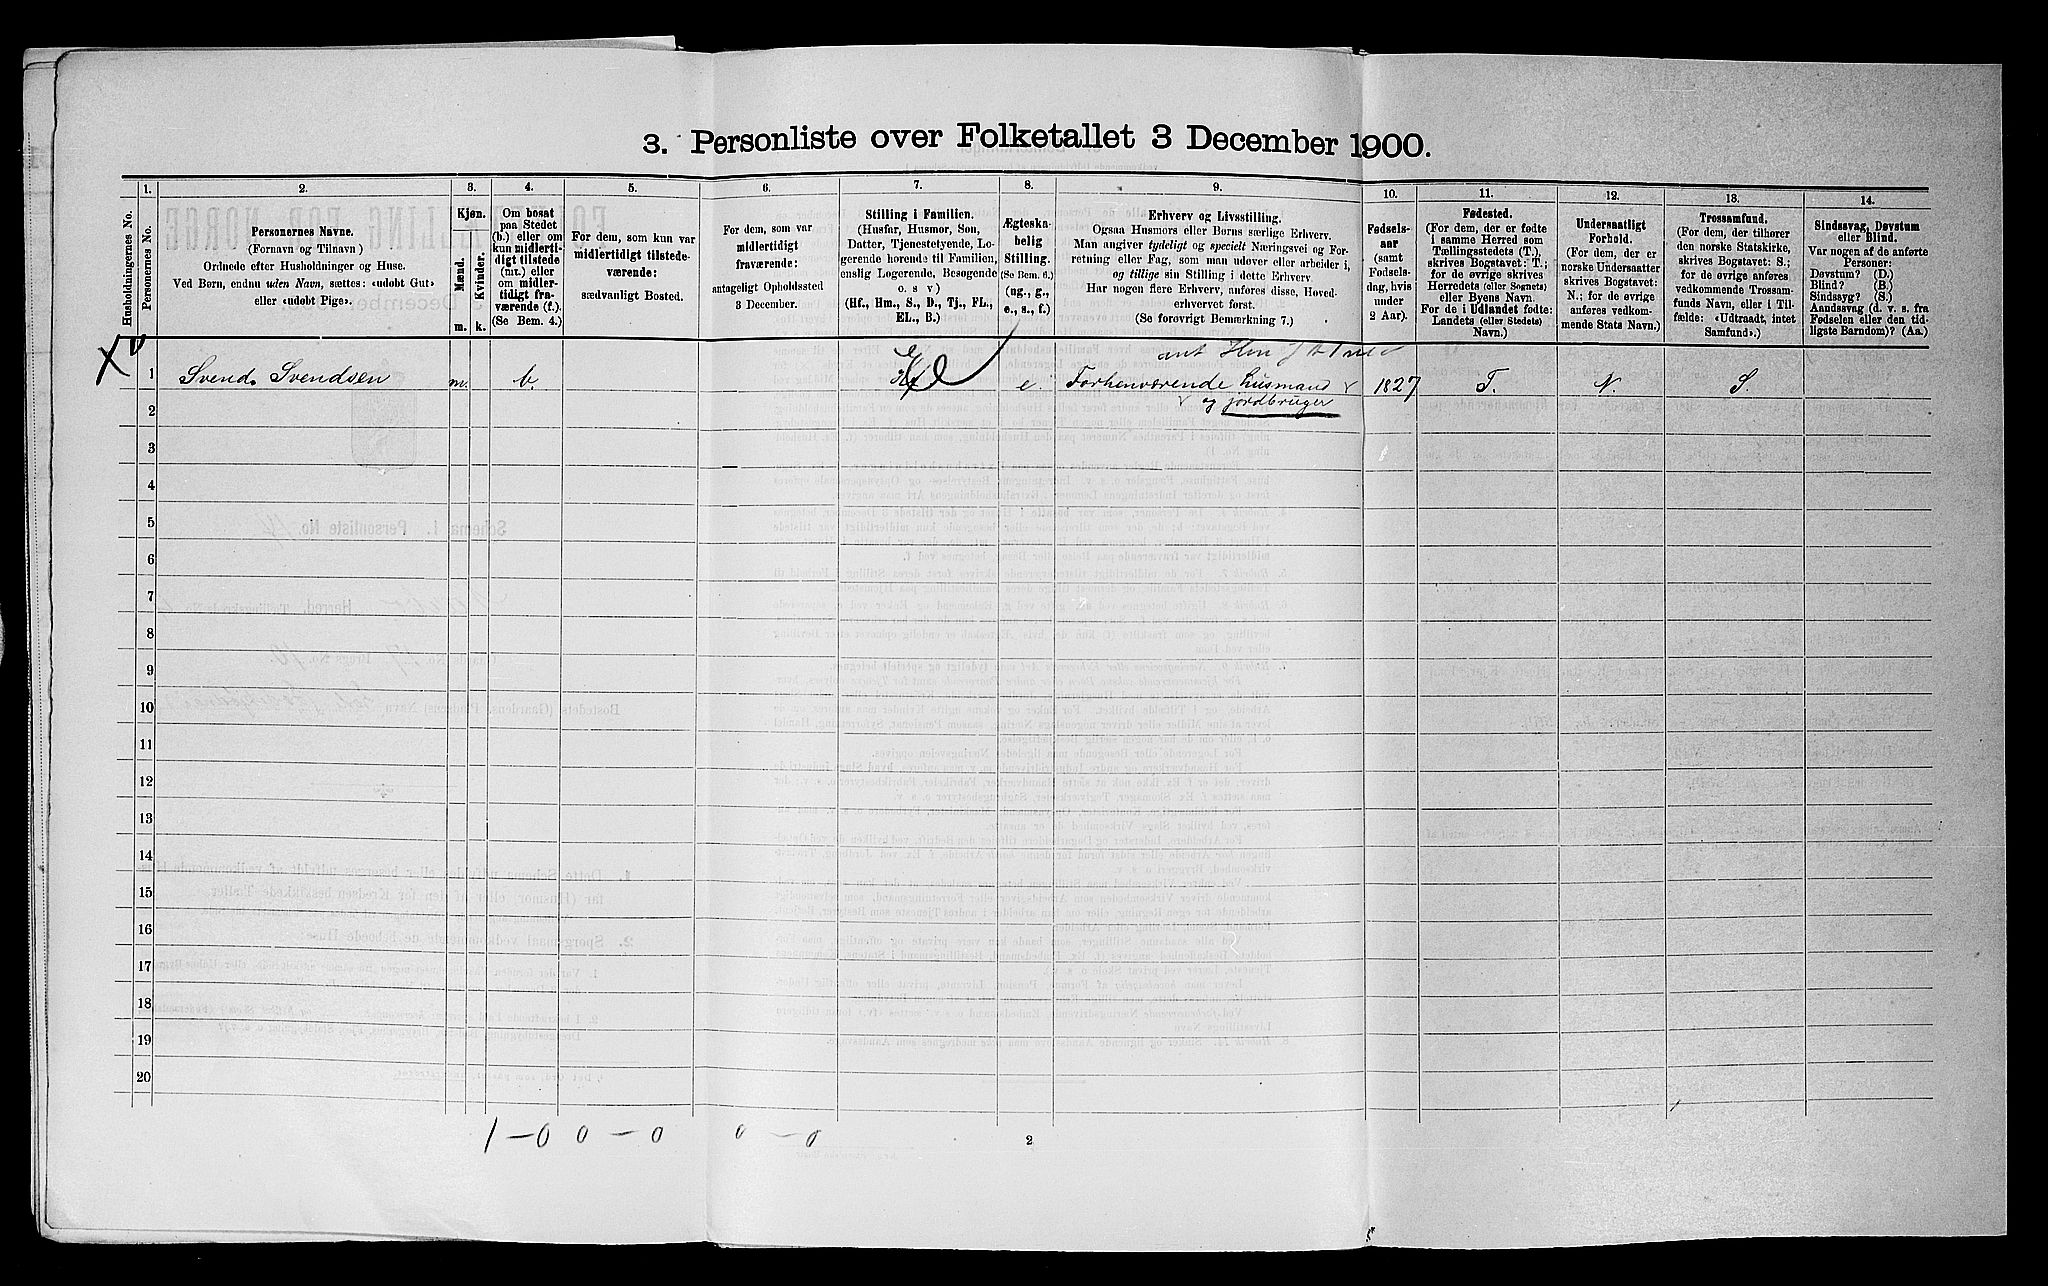 3. Personliste over Folketallet 3 December 1900.
1. 2. 3. 4. 5. 6. 7. 8. 9. 10. 11. 12. 13. 14.
Husholdningernes No.
Personernes No.
Personernes Navne.
(Fornavn og Tilnavn)
Ordnede efter Husholdninger og Huse.
Ved Børn, endnu uden Navn, sættes: «udøbt Gut»
eller «udøbt Pige».
Kjøn.
Mænd.
Kvinder.
m. k.
Om bosat
paa Stedet
(b.) eller om
kun midlerti-
digt tilstede
(mt.) eller
om midler-
tidigt fra-
værende (f.).
(Se Bem. 4.)
For dem, som kun var
midlertidigt tilstede-
værende:
sædvanligt Bosted.
For dem, som var
midlertidigt
fraværende:
antageligt Opholdssted
3 December.
Stilling i Familien.
(Husfar, Husmor, Søn,
Datter, Tjenestetyende, Lo-
gerende hørende til Familien,
enslig Logerende, Besøgende
o. s. v.)
(Hf., Hm., S., D., Tj., FL.,
EL., B.)
Ægteska-
belig
Stilling.
(Se Bem. 6.)
(ug., g.,
e., s., f.)
Erhverv og Livsstilling.
Ogsaa Husmors eller Børns særlige Erhverv.
Man angiver tydeligt og specielt Næringsvei og For-
retning eller Fag, som man udøver eller arbeider i,
og tillige sin Stilling i dette Erhverv.
Har nogen flere Erhverv, anføres disse, Hoved-
erhvervet først.
(Se forøvrigt Bemærkning 7.)
Fødsels-
aar
(samt
Fødsels-
dag, hvis
under
2 Aar).
Fødested.
(For dem, der er fødte
i samme Herred som
Tællingsstedets (T.),
skrives Bogstavet: T.;
for de øvrige skrives
Herredets (eller Sognets)
eller Byens Navn.
For de i Udlandet fødte:
Landets (eller Stedets)
Navn.)
Undersaatligt
Forhold.
(For dem, der er
norske Undersaatter
skrives Bogstavet:
N.; for de øvrige
anføres vedkom-
mende Stats Navn.)
Trossamfund.
(For dem, der tilhører
den norske Statskirke,
skrives Bogstavet: S.;
for de øvrige anføres
vedkommende Trossam-
funds Navn, eller i Til-
fælde: «Udtraadt, intet
Samfund».)
Sindssvag, Døvstum
eller Blind.
Var nogen af de anførte
Personer:
Døvstum? (D.)
Blind? (B.)
Sindssyg? (S.)
Aandssvag (d. v. s. fra
Fødselen eller den tid-
ligste Barndom)? (Aa.)
1 Svend. Svendsen m. b. e. Forhenværende husmand 1827 T. N. S.
og jordbruger
2
3
4
5
6
7
8
9
10
11
12
13
14
15
16
17
18
19
20
1 – 0 0 – 0 0 – 0
2